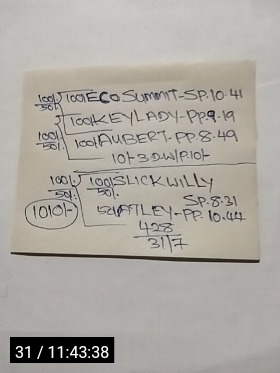 100/- 100/- ECO SUMMIT - SP. 10.41
50/-
100/- KEYLADY - PP. 9.19
100/- 100/- AUBERT - PP. 8.49
50/-
10/- 3 D.W/P. 10/-
100/- 100/- SLICK WILLY
50/- 50/- SP. 8.31
1010/- 50/- ATLEY - PP. 10.44
428
3117
31 / 11:43:38